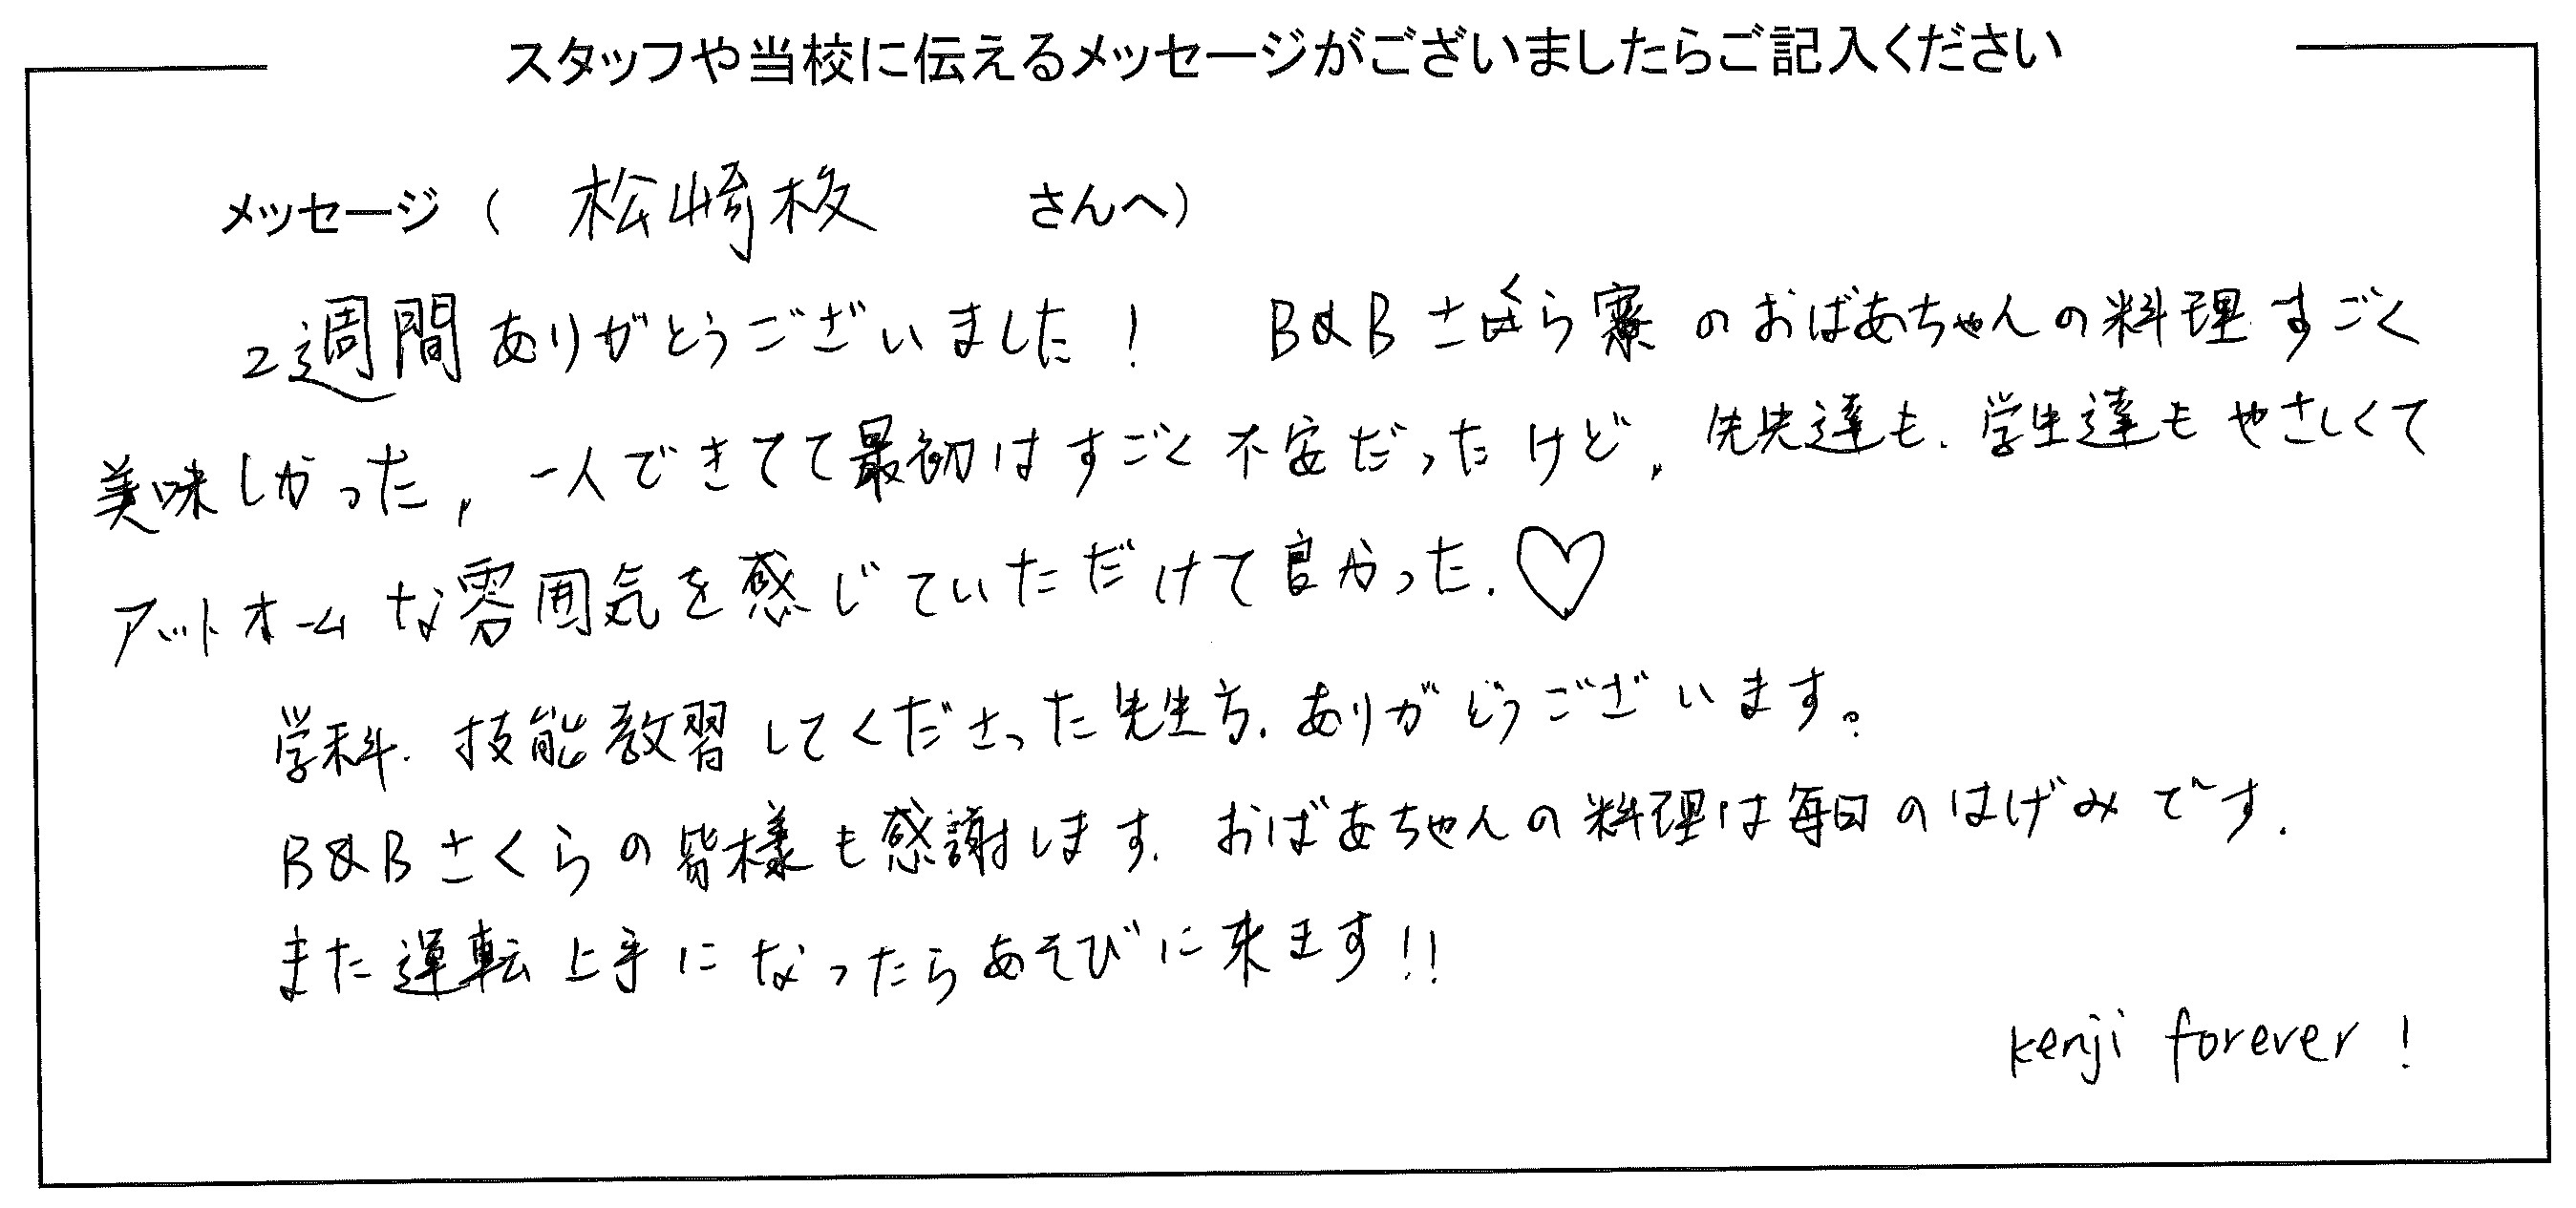 スタッフや当校に伝えるメッセージがございましたらご記入ください
メッセージ（ 松崎校 さんへ）
2週間ありがとうございました！ B&Bさくら寮のおばあちゃんの料理すごく
美味しかった, 一人できてて最初はすごく不安だったけど, 先生達も、学生達もやさしくて
アットホームな雰囲気を感じていただけて良かった.♡
学科、技能教習してくださった先生方、ありがどうございます。
B&Bさくらの皆様も感謝します、おばあちゃんの料理は毎日のはげみです.
また運転上手になったらあそびに来ます!!
kenji forever !